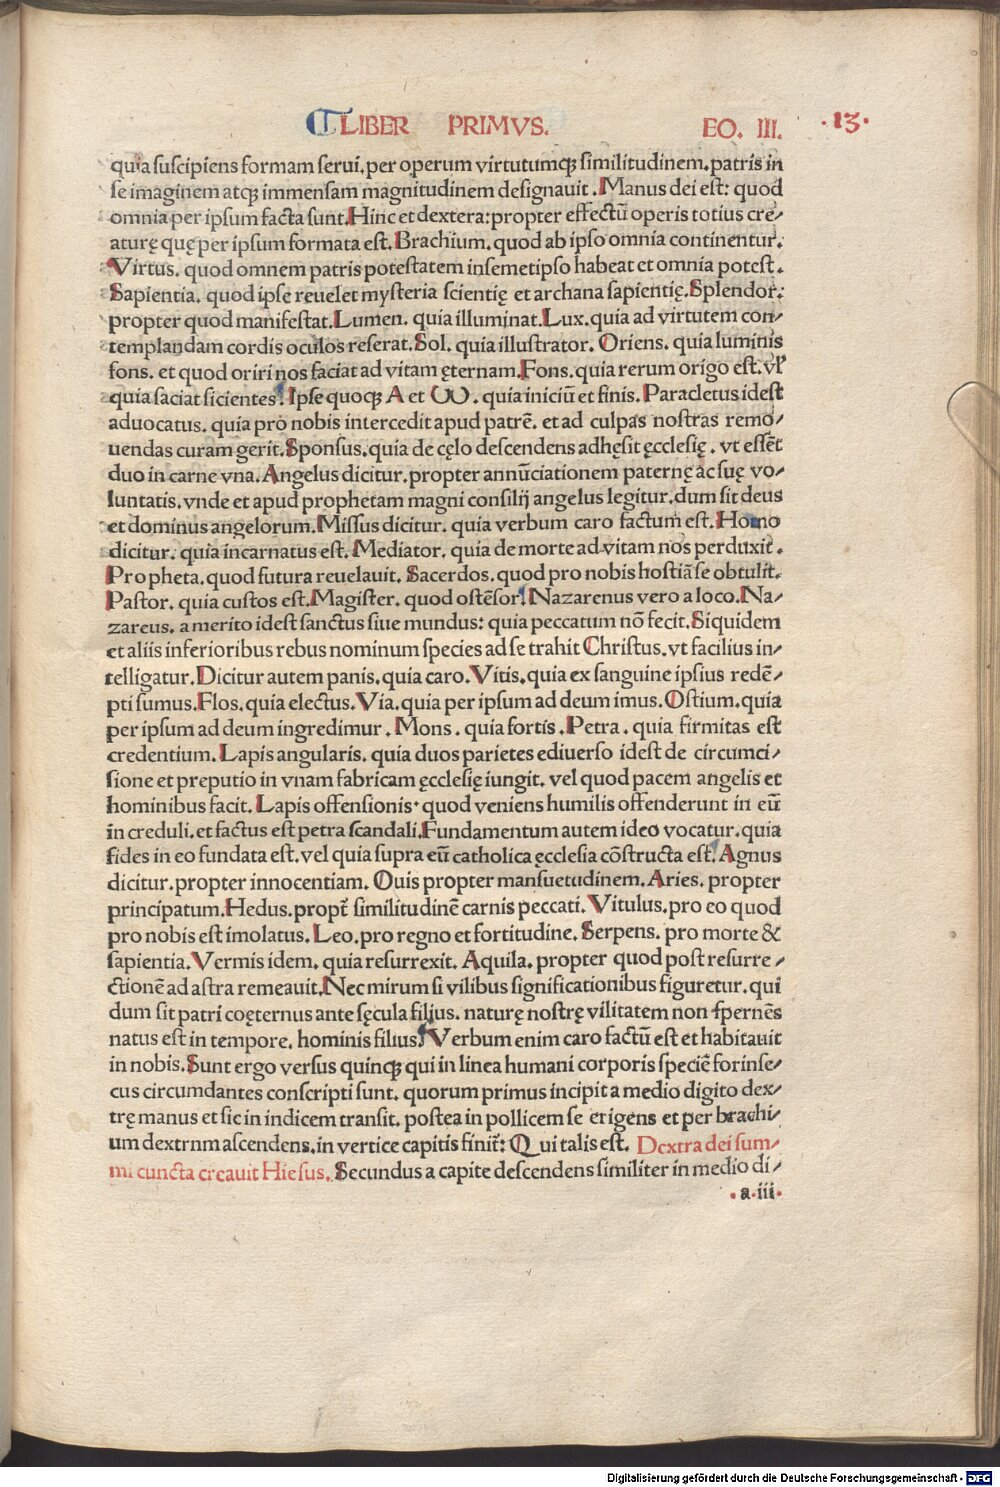 LIBER PRIMVS. FO. III. ·13·
quia suscipiens formam serui, per operum virtutumqꝫ similitudinem, patris in
se imaginem atqꝫ immensam magnitudinem designauit. Manus dei est: quod
omnia per ipsum facta sunt. Hinc et dextera: propter effectū operis totius cre⸗
aturę quę per ipsum formata est. Brachium, quod ab ipso omnia continentur.
Virtus, quod omnem patris potestatem insemetipso habeat et omnia potest.
Sapientia, quod ipse reuelet mysteria scientię et archana sapientię. Splendor:
propter quod manifestat. Lumen, quia illuminat. Lux, quia ad virtutem con⸗
templandam cordis oculos reserat. Sol, quia illustrator. Oriens, quia luminis
fons, et quod oriri nos faciat ad vitam ęternam. Fons, quia rerum origo est, vł
quia saciat sicientes. Ipse quoqꝫ A et ω, quia iniciū et finis. Paracletus idest
aduocatus, quia pro nobis intercedit apud patrē, et ad culpas nostras remo⸗
uendas curam gerit. Sponsus, quia de cęlo descendens adhęsit ęcclesię, vt essēt
duo in carne vna. Angelus dicitur, propter annūciationem paternę ac suę vo⸗
luntatis, vnde et apud prophetam magni consilij angelus legitur, dum sit deus
et dominus angelorum. Missus dicitur, quia verbum caro factum est. Homo
dicitur, quia incarnatus est. Mediator, quia de morte ad vitam nos perduxit.
Propheta, quod futura reuelauit. Sacerdos, quod pro nobis hostiā se obtulit.
Pastor, quia custos est. Magister, quod ostēsor. Nazarenus vero a loco. Na⸗
zareus, a merito idest sanctus siue mundus: quia peccatum nō fecit. Siquidem
et aliis inferioribus rebus nominum species ad se trahit Christus, vt facilius in⸗
telligatur. Dicitur autem panis, quia caro. Vitis, quia ex sanguine ipsius redē⸗
pti sumus. Flos, quia electus. Via, quia per ipsum ad deum imus. Ostium, quia
per ipsum ad deum ingredimur. Mons, quia fortis. Petra, quia firmitas est
credentium. Lapis angularis, quia duos parietes ediuerso idest de circumci⸗
sione et preputio in vnam fabricam ęcclesię iungit, vel quod pacem angelis et
hominibus facit. Lapis offensionis· quod veniens humilis offenderunt in eū
in creduli, et factus est petra scandali. Fundamentum autem ideo vocatur, quia
fides in eo fundata est, vel quia supra eū catholica ęcclesia cōstructa est. Agnus
dicitur, propter innocentiam. Ouis propter mansuetudinem. Aries, propter
principatum. Hedus, propt̄ similitudinē carnis peccati. Vitulus, pro eo quod
pro nobis est imolatus. Leo, pro regno et fortitudine. Serpens, pro morte &
sapientia. Vermis idem, quia resurrexit. Aquila, propter quod post resurre⸗
ctionē ad astra remeauit. Nec mirum si vilibus significationibus figuretur, qui
dum sit patri coęternus ante sęcula filius, naturę nostrę vilitatem non spernēs
natus est in tempore, hominis filius. Verbum enim caro factū est et habitauit
in nobis. Sunt ergo versus quinqꝫ qui in linea humani corporis speciē forinse⸗
cus circumdantes conscripti sunt, quorum primus incipit a medio digito dex⸗
trę manus et sic in indicem transit, postea in pollicem se erigens et per brachi⸗
um dextrnm ascendens, in vertice capitis finit̄: Qui talis est. Dextra dei sum⸗
mi cuncta creauit Hiesus. Secundus a capite descendens similiter in medio di⸗
·a·iii·
Digitalisierung gefördert durch die Deutsche Forschungsgemeinschaft - DFG